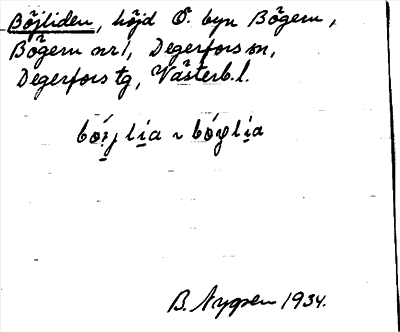 Böjliden, höjd Ö. byn Bögern,
Bögern nr 1, Degerfors sn,
Degerfors tg, Västerb. l.
B. Nygren 1934.